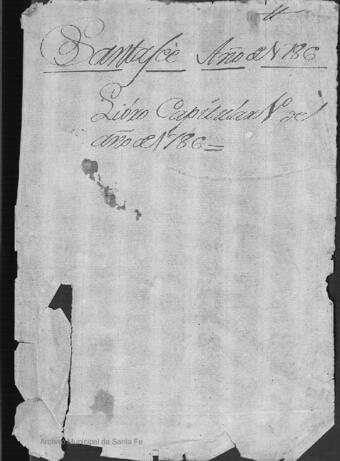 Santafée Año de 1786
Libro Capitular Nº del
año de 1786=
Archivo Municipal de Santa Fe